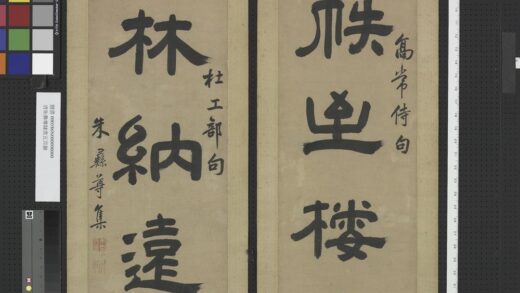 帙至棲
高常侍句
林納遠
杜工部句
朱彝尊集